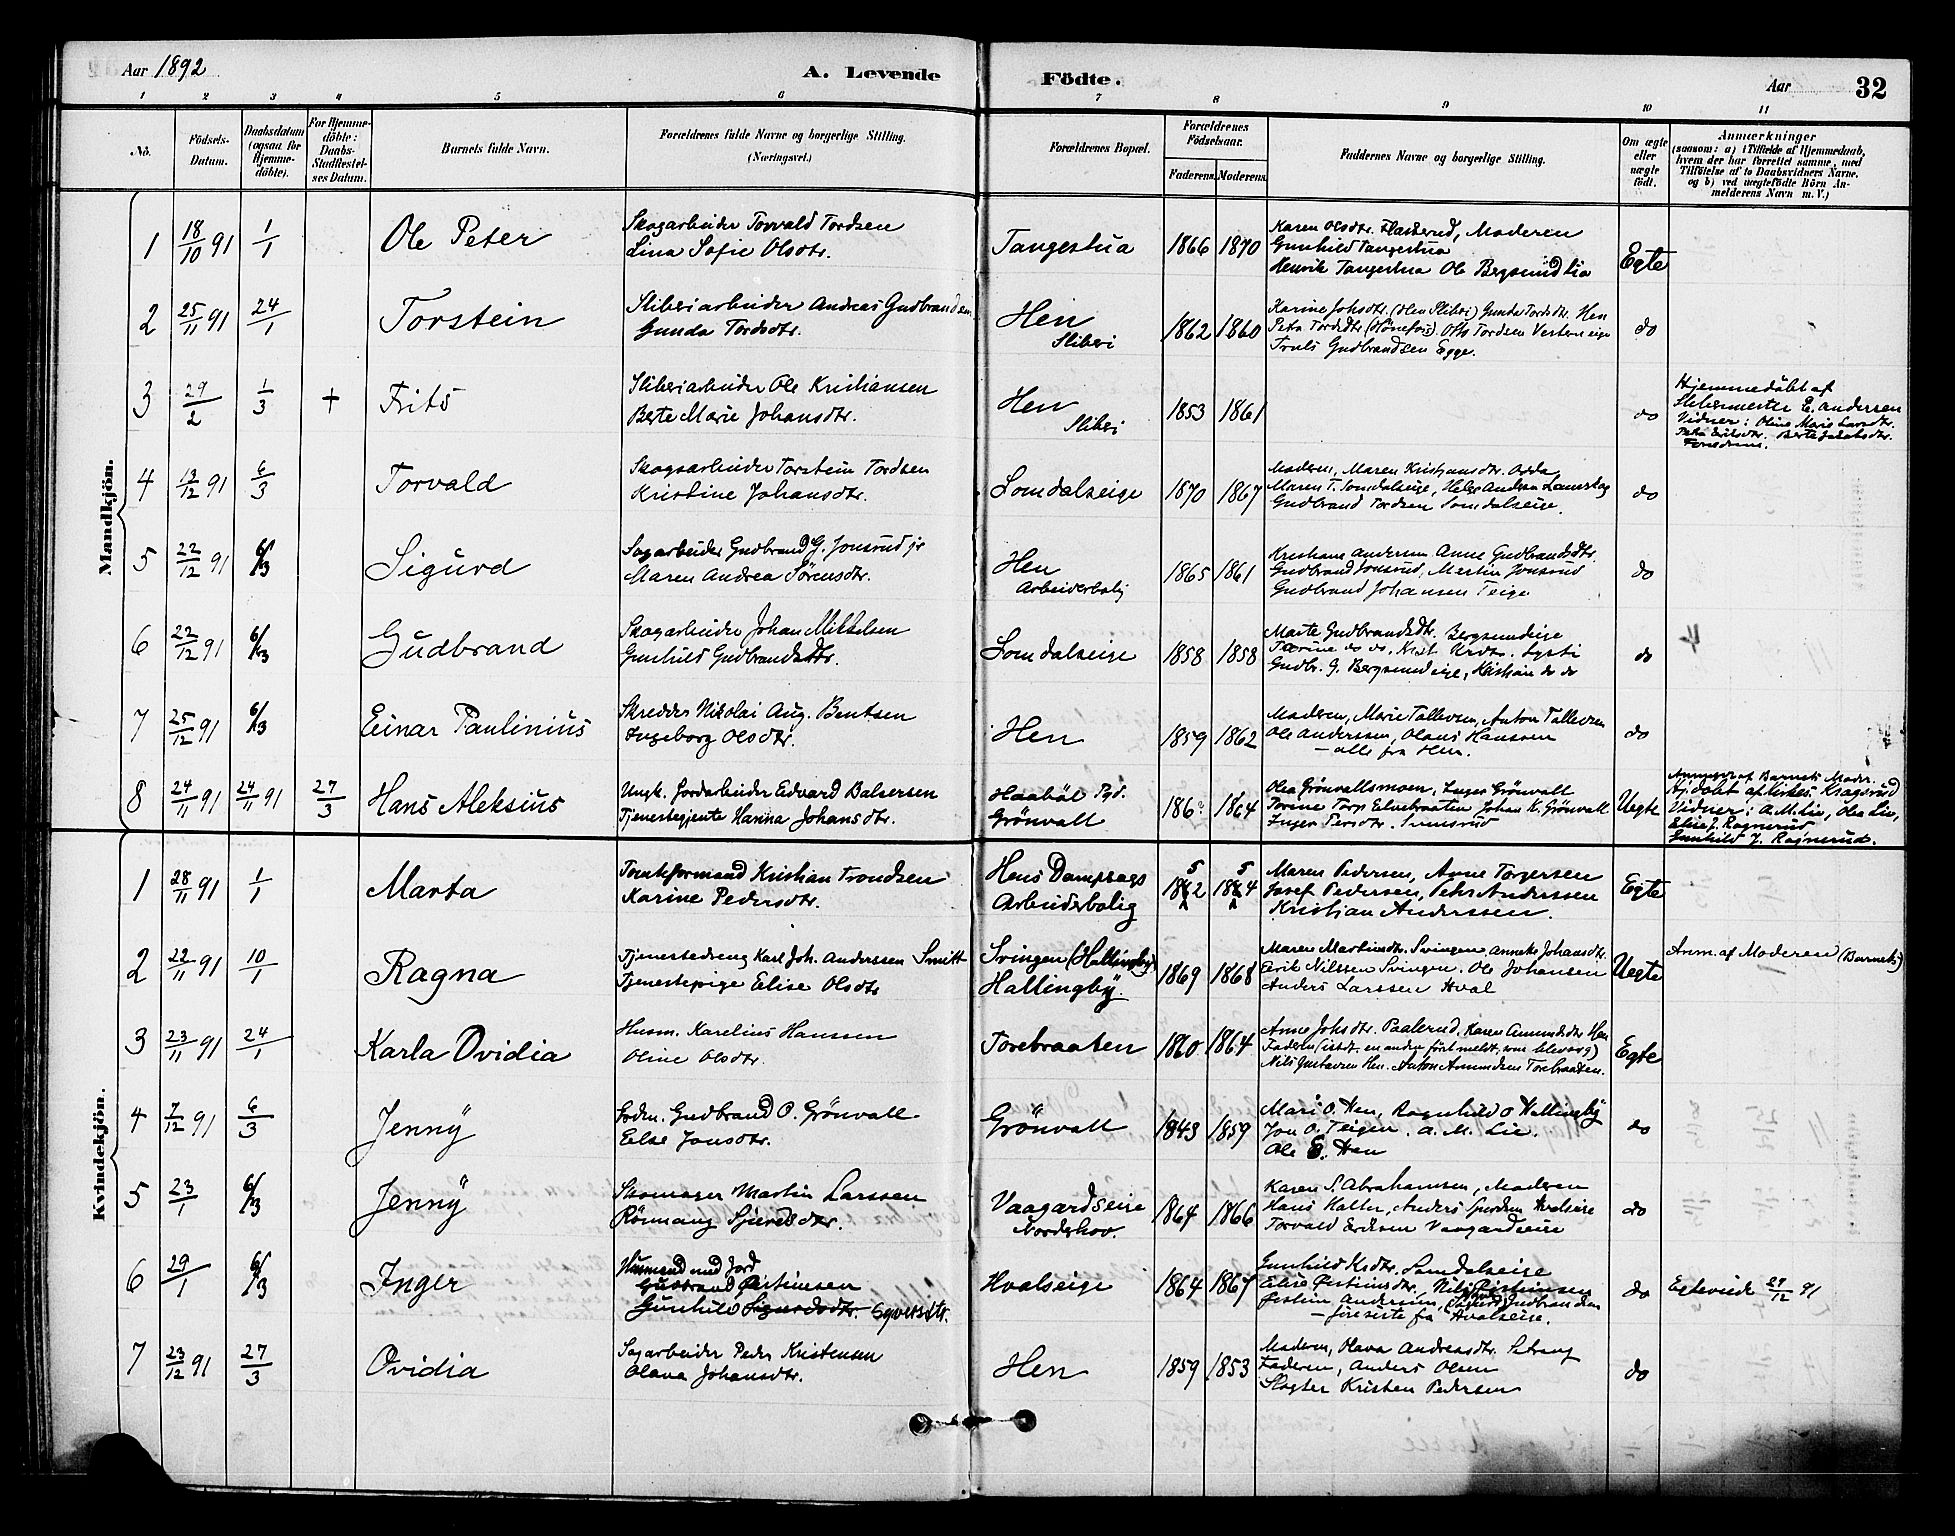 Aar 1892
A. Levende Födte.
Aar 32
1 2 3 4 5 6 7 8 9 10 11
No.
Födsels-Datum.
Daabsdatum (ogsaa for Hjemme-döbte).
For Hjemme-döbte: Daabs-Stadfæstel-ses Datum.
Barnets fulde Navn.
Forældrenes fulde Navne og borgerlige Stilling. (Næringsvei.)
Forældrenes Bopæl.
Forældrenes Födselsaar.
Faderens. Moderens.
Faddernes Navne og borgerlige Stilling.
Om ægte eller uægte födt.
Anmærkninger (saasom: a) i Tilfælde af Hjemmedaab, hvem der har forrettet samme, med Tilföielse af to Daabsvidners Navne, og b) ved uægtefödte Börn An-melderens Navn m. V.)
Mandkjön.
1 18/10 91 1/1 Ole Peter
Skogarbeider Torvald Tordsen
Lina Sofie Olsdtr.
Tangestua 1866 1870
Karen Olsdtr. Flaskerud, Moderen
Gunhild Tangestua
Henrik Tangestua Ole Bergsundlia
Egte
2 25/11 91 24/1 Torstein
Sliberiarbeider Andreas Gudbrandsen
Gunda Tordsdtr.
Hen Sliberi 1862 1860
Karine Johsdtr. (Hen Sliberi) Gunda Tordsdtr. Hen
Peta Tordsdtr. (Hönefos) Otto Tordsen Vesterneige
Truls Gudbrandsen Egge.
do
3 29/2 1/3 + Frits
Sliberiarbeider Ole Kristiansen
Berte Marie Johansdtr.
Hen Sliberi 1853 1861
do
Hjemmedöbt af
Slibermester E. Andersen
Vidner: Oline Marie Larsdtr.
4 13/12 91 6/3 Torvald
Skogsarbeider Torstein Tordsen
Kristine Johansdtr.
Somdalseige 1870 1867
Moderen, Maren Kristiansdtr. Odda
Maren T. Somdalseige, Helge Andersen
Gudbrand Tordsen Somdalseige.
do
5 22/12 91 6/3 Sigurd
Sagarbeider Gudbrand G. Jonsrud jr
Maren Andrea Sörensdtr.
Hen Arbeiderbolig 1865 1861
Kristiane Andersen Anne Gudbrandsdtr.
Gudbrand Jonsrud, Martin Jonsrud
Gudbrand Johansen Teige
do
6 22/12 91 6/3 Gudbrand
Skogarbeider Johan Mikkelsen
Gunhild Gudbrandsdtr.
Somdalseige 1858 1858
Marte Gudbrandsdtr. Bergsundeige
Gudbr. G. Bergsundeige, Kristian do do
do
4
7 25/12 91 6/3 Einar Paulinius
Skredder Nikolai Aug. Bentsen
Ingeborg Olsdtr.
Hen 1859 1862
Moderen, Marie Tollevsen, Anton Tollevsen
Ole Anderssen, Olaus Hanssen
– alle fra Hen.
do
8 24/11 91 24/11 91 27/3 Hans Aleksius
Ungk. Jordarbeider Edvard Balsersen
Tjenestejente Hanna Johansdtr.
Haaböl Pgd.
Grönvall 186? 1864
Olea Grönvallsmoen, Inger Grönvall
Torine Torp Johan K. Grönvall
Inger Persdtr. Svensrud
Uegte
Anmeldt af Barnets Moder.
Hjdöbt af Kragsrud
Vidner: A. M. Lie, Olea Lie,
Elise J. Ragnerud
Gunhild J. Ragnerud.
Kvindekjön.
1 28/11 91 1/1 Marta
Tomteformand Kristian Trondsen
Karine Pedersdtr.
Hens Dampsags
Arbeiderbolig 1852 1854
Maren Pedersen, Anne Torgersen
Josef Pedersen, Peter Anderssen
Kristian Anderssen.
Egte
2 22/11 91 10/1 Ragna
Tjenestedreng Karl Joh. Anderssen Smitt
Tjenestepige Elise Olsdtr
Svingen (Hallingby)
Hallingby. 1869 1868
Maren Martinsdtr. Svingen Anneke Johansdtr.
Eirik Nilssen Svingen. Ole Johansen
Anders Larssen Hval
Uegte
Anm. af Moderen (Barnets)
3 23/11 91 24/1 Karla Ovidia
Husm. Karelius Hanssen
Oline Olsdtr.
Torebraaten 1860 1864
Anne Johsdtr. Paalerud, Karen Amundsdtr. Hen
Faderen (istdt. en anden först meldt, som blev syg)
Nils Gustavsen Hen. Anton Amundsen Torebraaten.
Egte
4 7/12 91 6/3 Jenny
Gudbrand O. Grönvall
Else Jonsdtr.
Grönvall 1843 1859
Mari O. Hen, Ragnhild O Hallingby
Jon O. Teigen. A. M. Lie.
Ole E. Hen
do
5 23/1 6/3 Jenny
Skomager Martin Larssen
Rönnaug Sjurdsdtr.
Vaagardseige
Norderhov. 1864 1866
Karen S. Abrahamsen, Moderen
Hans Haller, Anders Sjurdsen Hvalseige
Torvald Eriksen Vaagardseige
do
6 29/1 6/3 Inger
Husmand med Jord
Gudbrand Östensen
Gunhild Sigurdsdtr. Syversdtr.
Hvalseige 1864 1867
Gunhild Krdtr. Somdalseige
Elise Östensdtr., Nils Östensen
Östen Andersen, Gudbrandsen
– foresatte fra Hvalseige.
do
Egteviede 27/12 91
7 23/12 91 27/3 Ovidia
Sagarbeider Peder Kristensen
Olava Johansdtr.
Hen 1859 1853
Moderen, Olava Andreasdtr.
Faderen, Anders Olsen
Slagter Kristen Pedersen
do